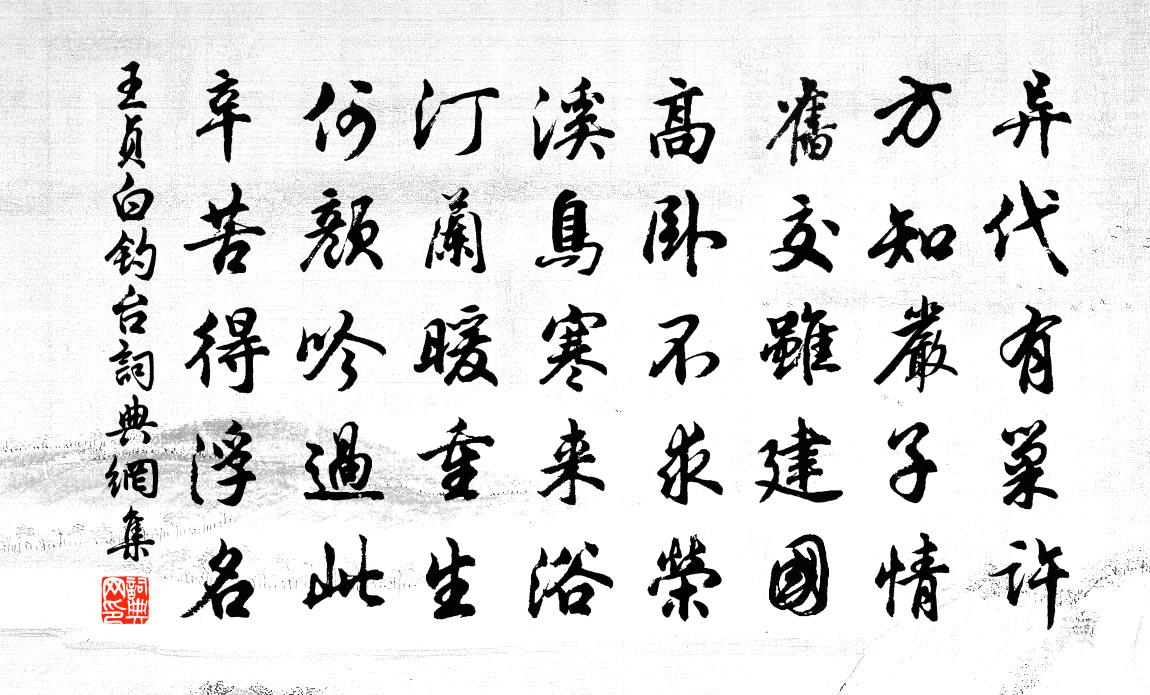 异代有巢许
方知嚴子情
舊交雖建國
高臥不求榮
溪鳥寒来浴
汀蘭暖重生
何顏吟過此
辛苦得浮名
王貞白釣台詞典網集
詞典网印